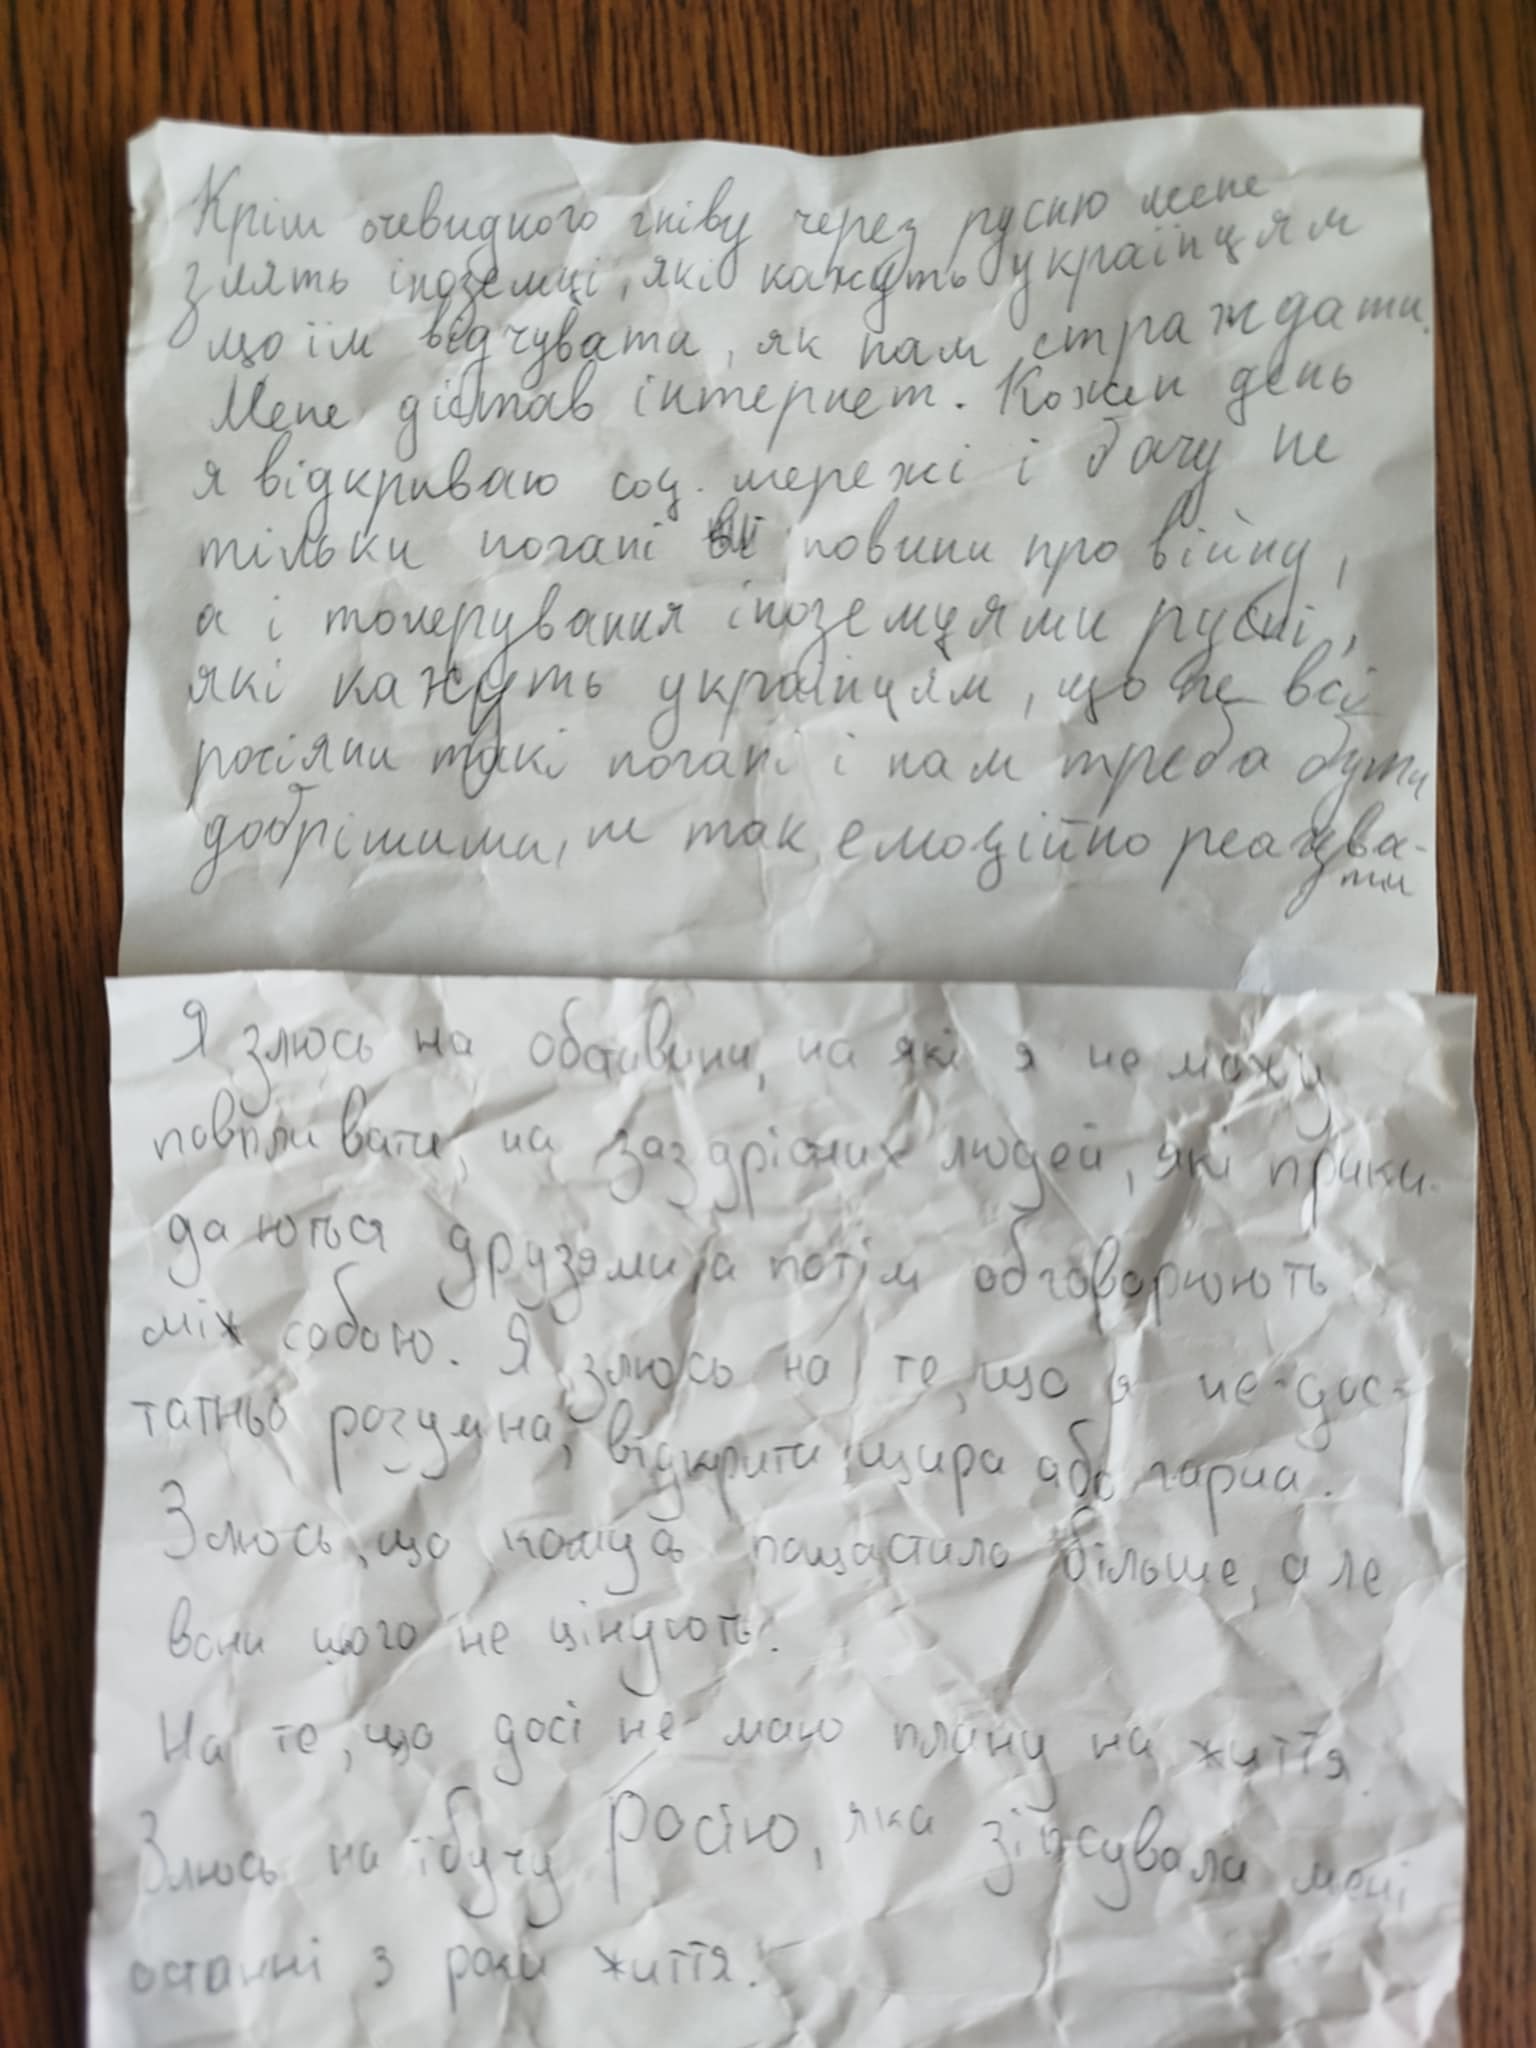 Крім очевидного гніву через русню мене
злять іноземці, які кажуть українцям
що їм відчувати, як нам страждати.
Мене дістав інтернет. Кожен день
я відкриваю соц. мережі і бачу не
тільки погані новини про війну,
а і толерування іноземцями русні,
які кажуть українцям, що не всі
росіяни такі погані і нам треба бути
добрішими, не так емоційно реагува-
ти
Я злюсь на обставини, на які я не можу
повпливати, на заздрісних людей, які прики-
даються друзями а потім обговорюють
між собою. Я злюсь на те, що я не дос-
татньо розумна, відкрита щира або гарна.
Злюсь, що комусь пощастило більше, але
вони цього не цінують.
На те, що досі не маю плану на життя.
Злюсь на їбучу Росію, яка зіпсувала мені
останні 3 роки життя.